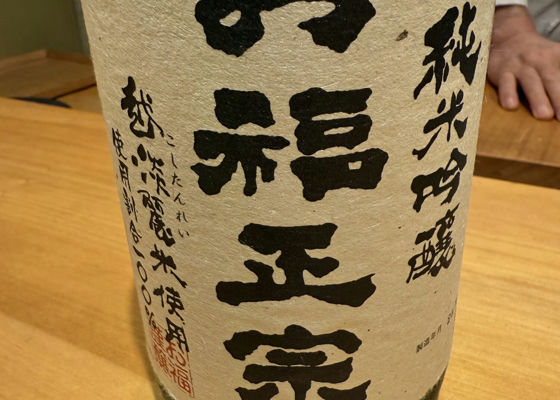 純米吟醸
お福正宗
越淡麗米使用
こしたんれい
使用割合一〇〇%
製造年月
お福